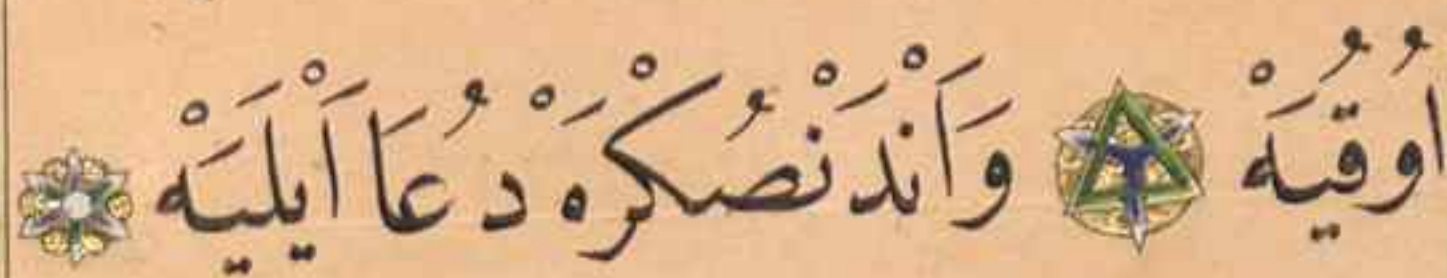 اُوقُيَهْ وَاَنْدَنْصُكْرَهْ دُعَا اَيْلَيَهْ